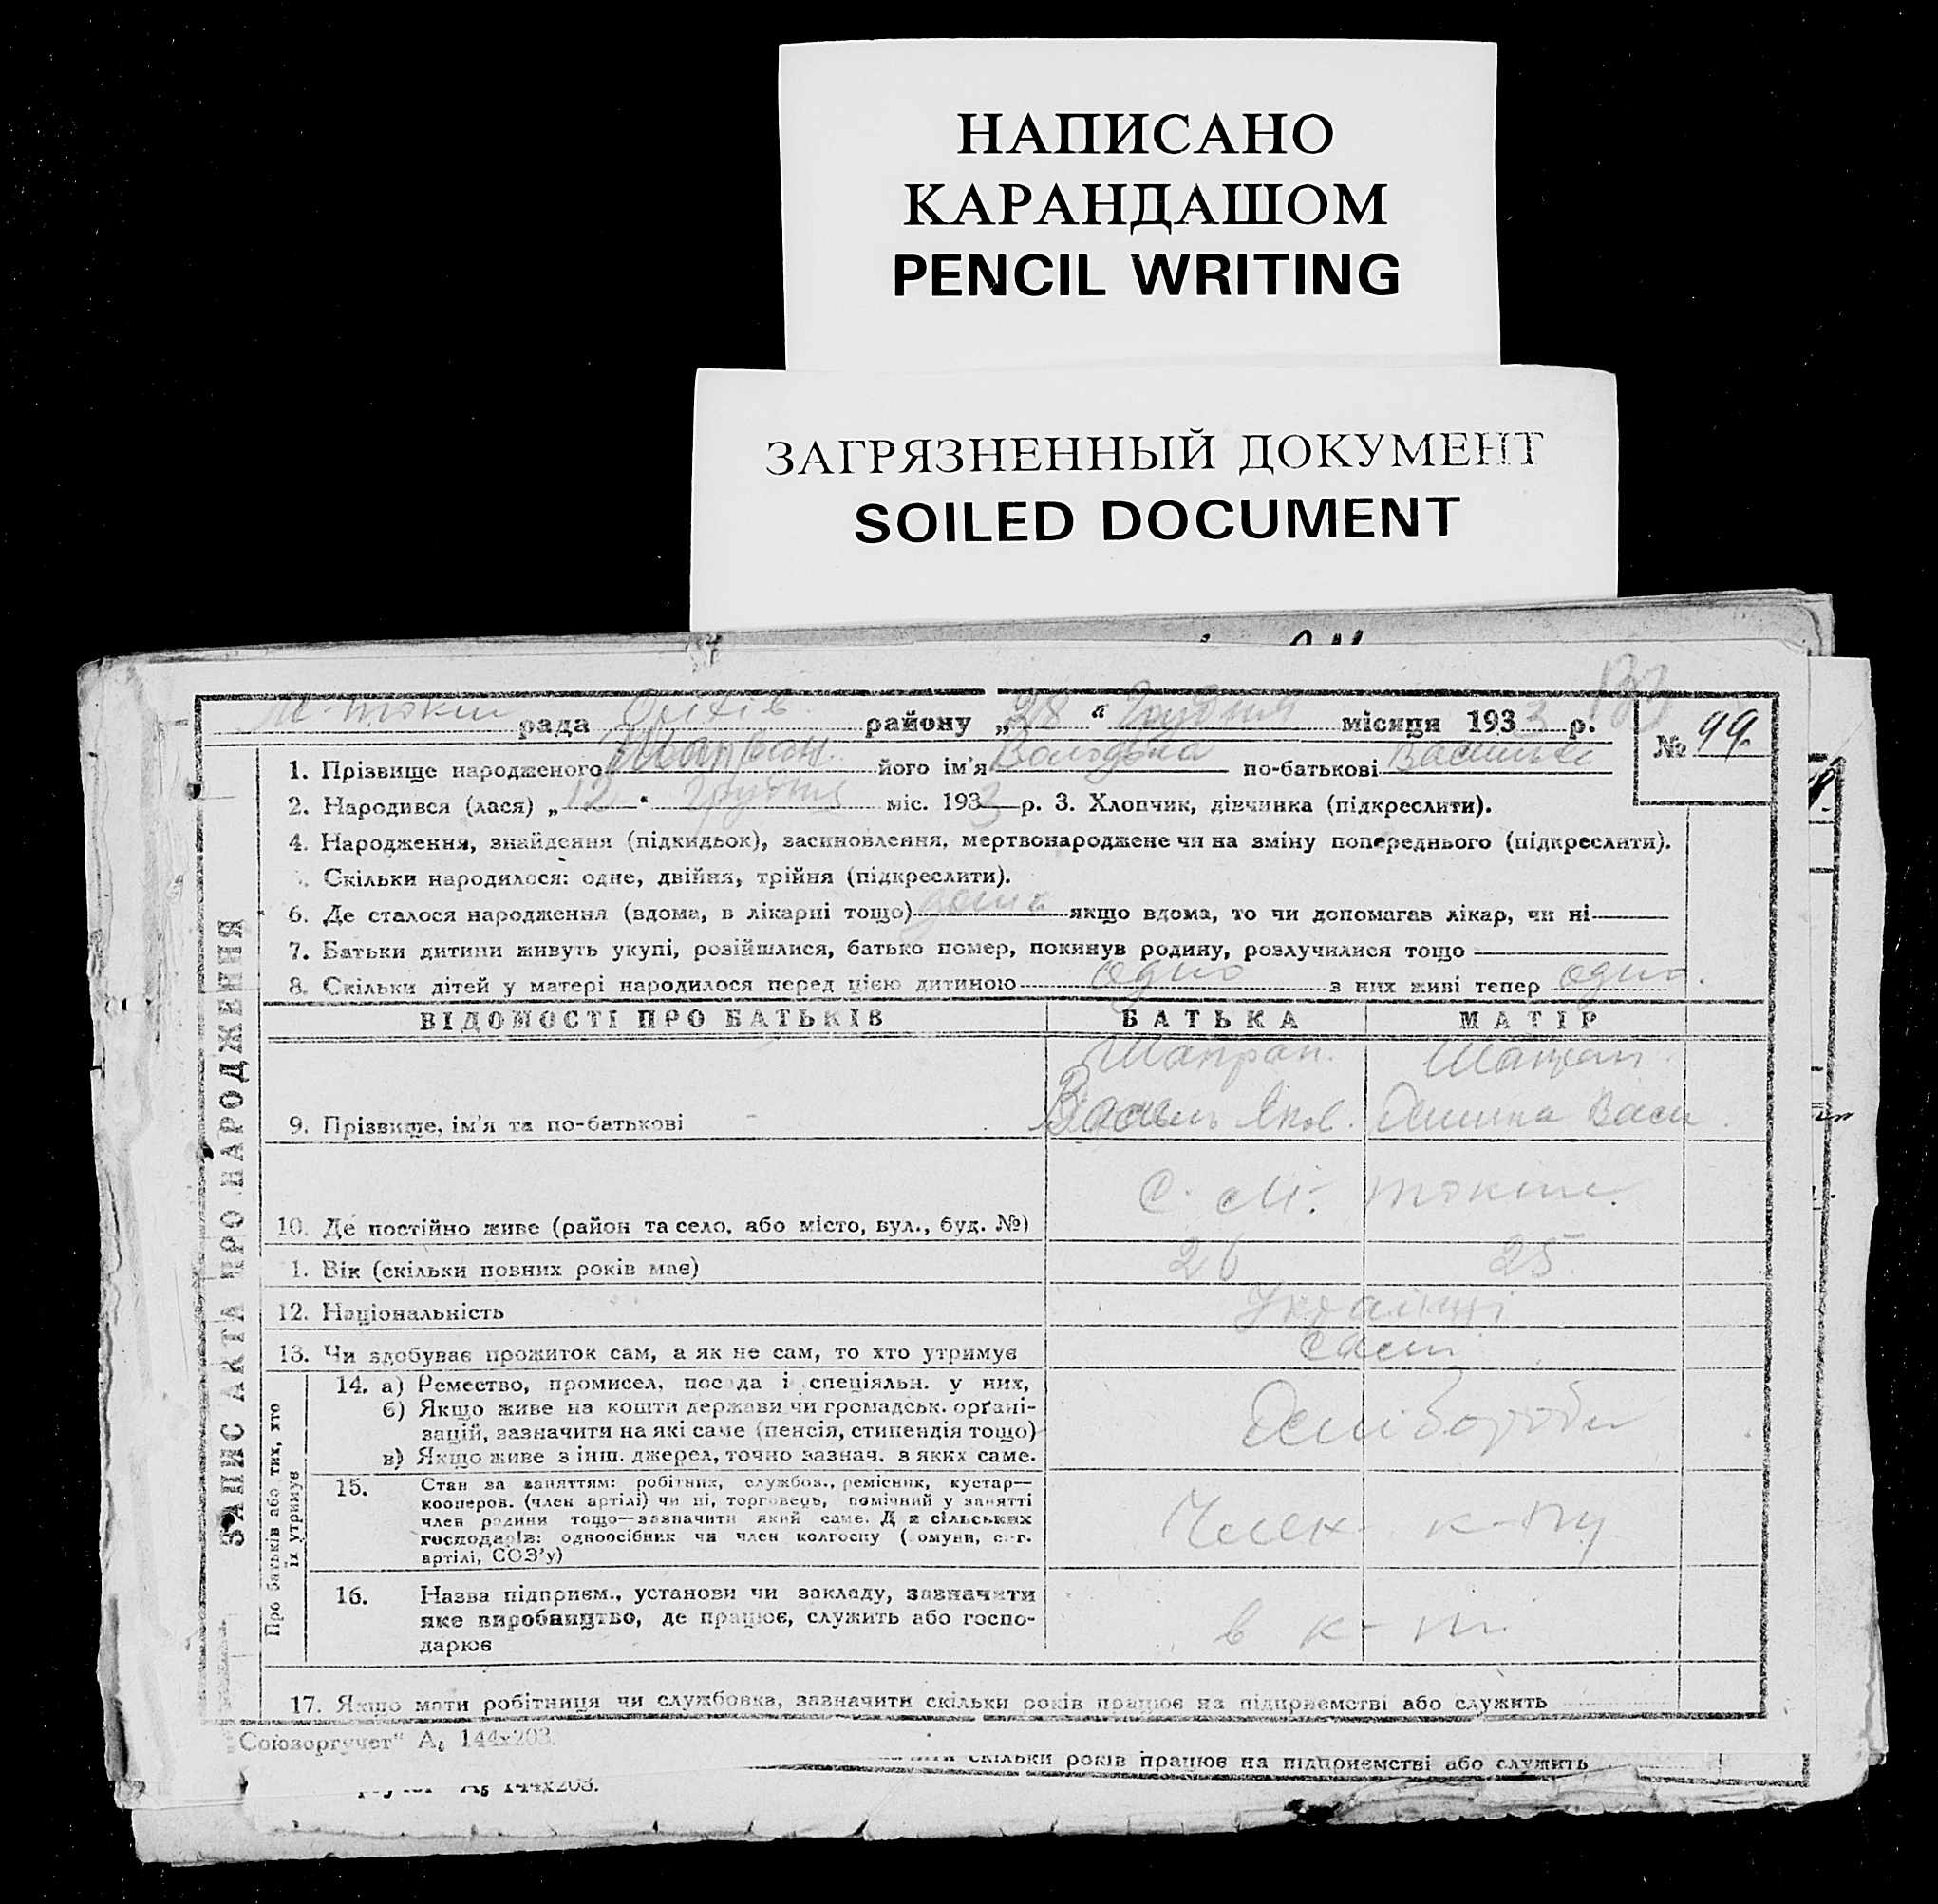 НАПИСАНО
КАРАНДАШОМ
PENCIL WRITING
ЗАГРЯЗНЕННЫЙ ДОКУМЕНТ
SOILED DOCUMENT
рада Оріхів району „28 “ Грудня місяця 1933 р.
№ 99.
1. Прізвище народженого Шапран його ім'я по-батькові
2. Народився (лася) „12 “ грудня міс. 1933 р. 3. Хлопчик, дівчинка (підкреслити).
4. Народження, знайдення (підкидьок), засиновлення, мертвонароджене чи на зміну попереднього (підкреслити).
Скільки народилося: одне, двійня, трійня (підкреслити).
6. Де сталося народження (вдома, в лікарні тощо) дома якщо вдома, то чи допомагав лікар, чи ні
7. Батьки дитини живуть укупі, розійшлися, батько помер, покинув родину, розлучилися тощо
8. Скільки дітей у матері народилося перед цією дитиною одно з них живі тепер одно.
ЗАПИС АКТА ПРО НАРОДЖЕННЯ
ВІДОМОСТІ ПРО БАТЬКІВ БАТЬКА МАТІР
Шапран. Шапран.
9. Прізвище, ім'я та по-батькові Василь Яков. Васи.
10. Де постійно живе (район та село, або місто, вул., буд. №) с.
1. Вік (скільки повних років має) 26 25
12. Національність Українці
13. Чи здобуває прожиток сам, а як не сам, то хто утримує сами
Про батьків або тих, хто
їх утримує
14. а) Ремество, промисел, посада і спеціяльн. у них,
б) Якщо живе на кошти держави чи громадськ. орґані-
зацій, зазначити на які саме (пенсія, стипендія тощо)
в) Якщо живе з інш. джерел, точно зазнач. з яких саме.
15. Стан за заняттям: робітник, службов., ремісник, кустар—
кооперов. (член артілі) чи ні, торговець, помічний у занятті
член родини тощо—зазначити який саме. Д я сільських
господарів: одноосібник чи член колгоспу ( омуни, с.-г.
артілі, СОЗ'у)
Член к-пу
16. Назва підприєм., установи чи закладу, зазначити
яке виробництво, де працює, служить або госпо-
дарює
в к-пі
17. Якщо мати робітниця чи службовка, зазначити скільки років працює на підприємстві або служить
Союзоргучет" А₆ 144х203.
скільки років працює на підприємстві або служить
А₅ 144х203.